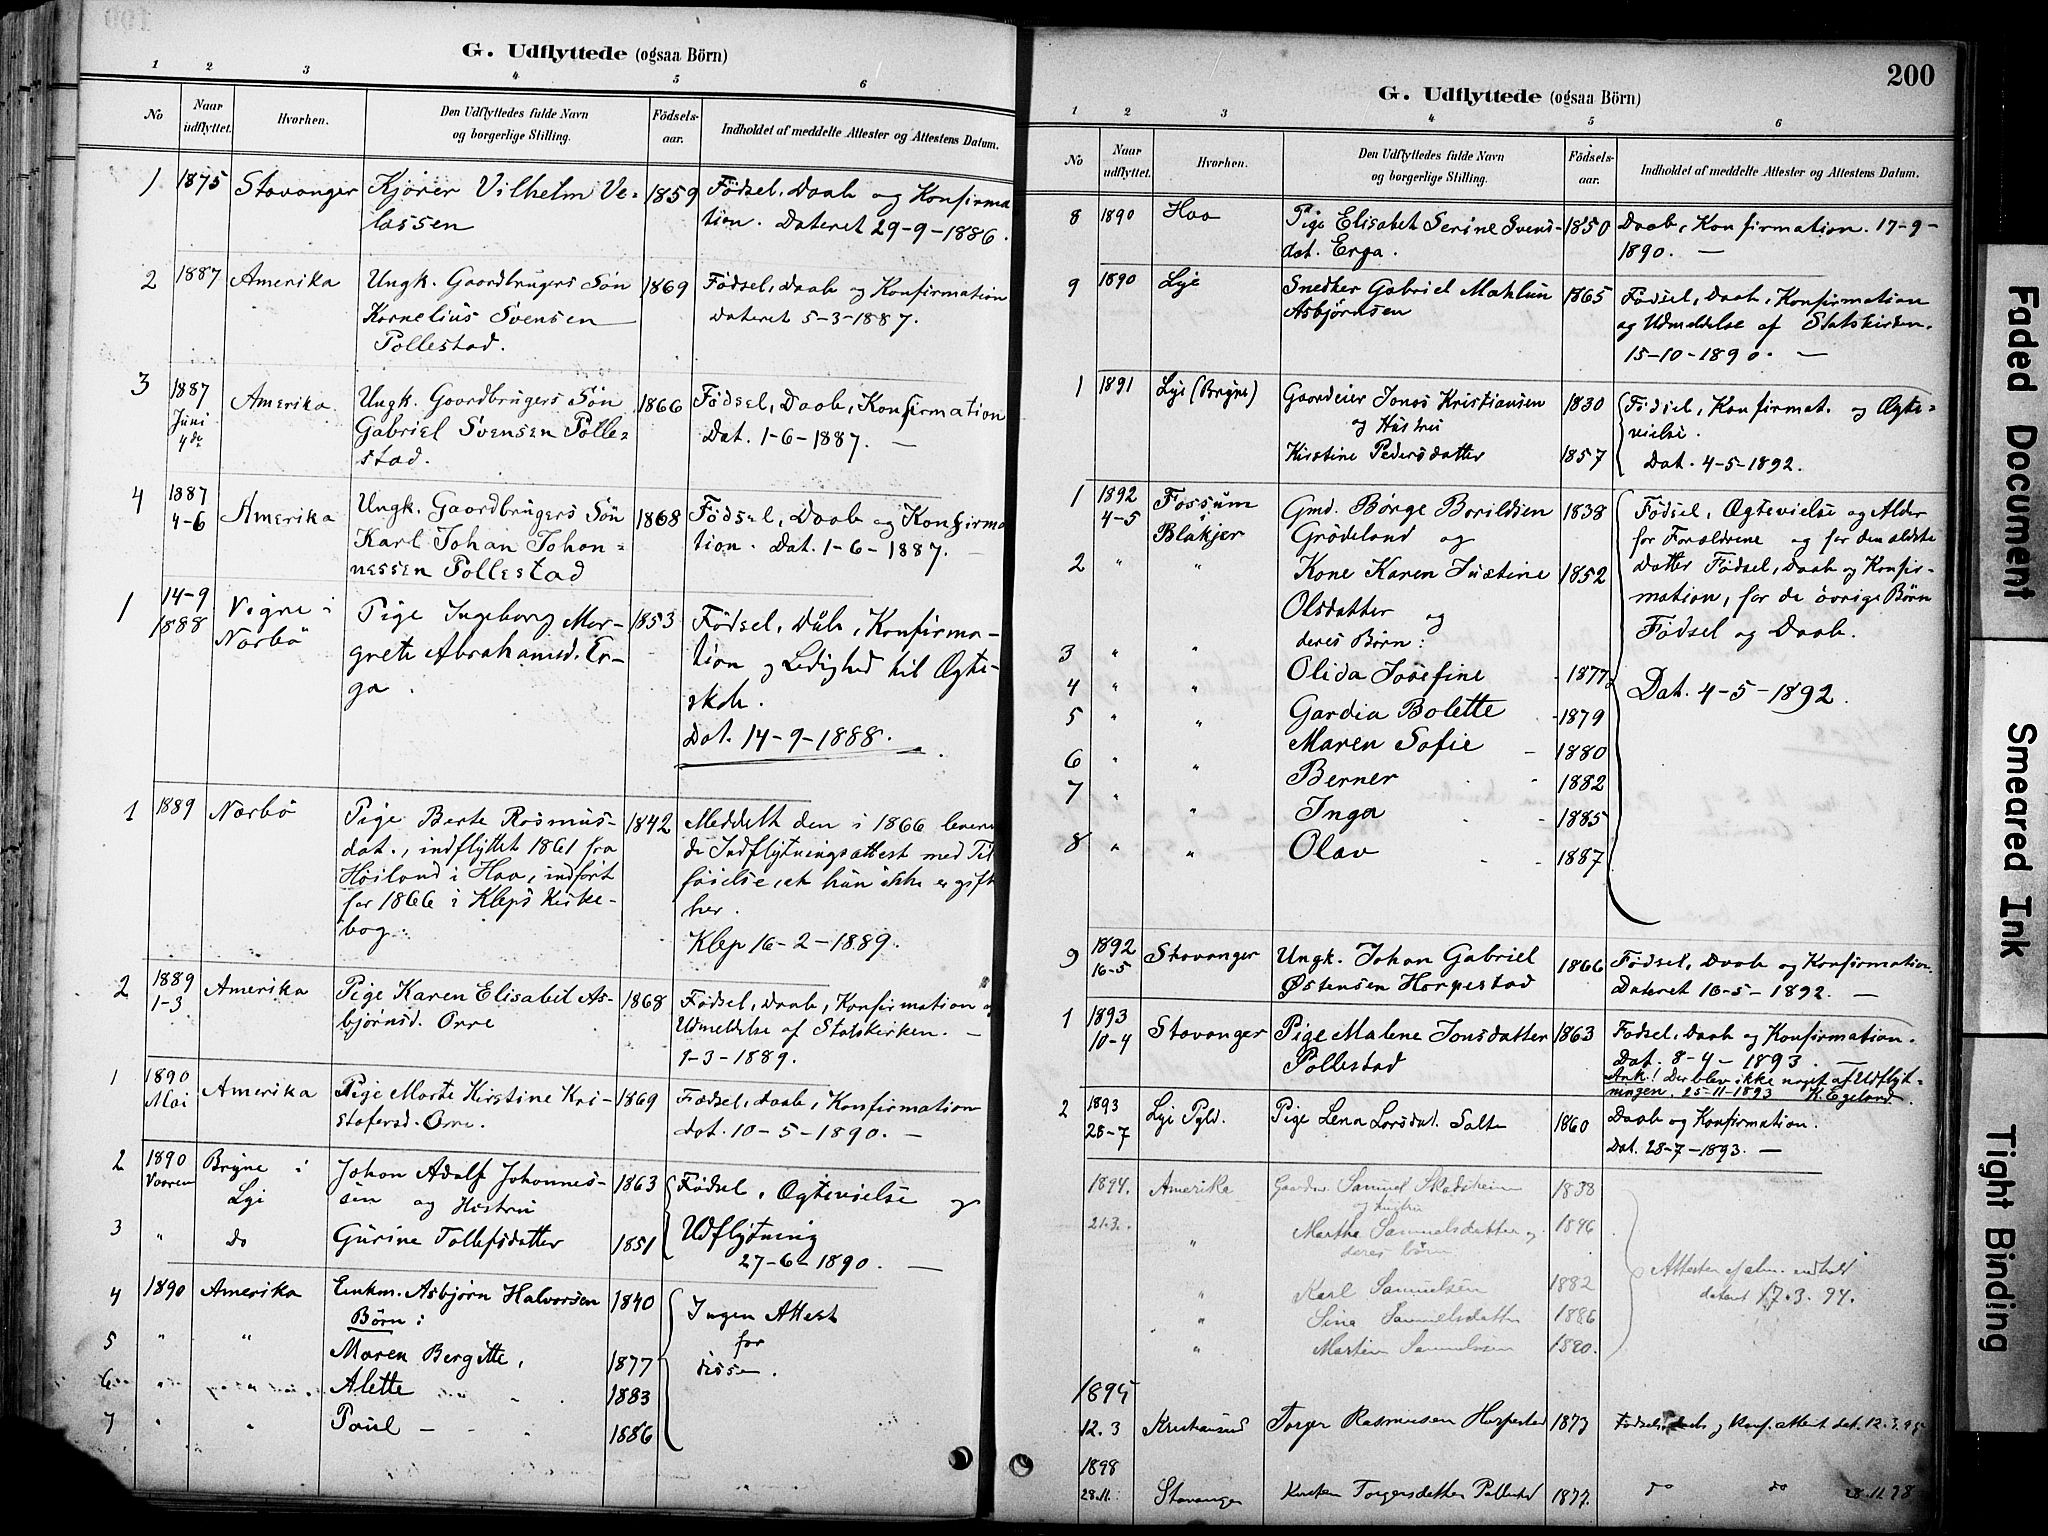 G. Udflyttede (ogsaa Börn)
1 2 3 4 5 6
No
Naar udflyttet.
Hvorhen.
Den Udflyttedes fulde Navn og borgerlige Stilling.
Födsels-aar.
Indholdet af meddelte Attester og Attestens Datum.
1 1875 Stavanger Kjører Vilhelm Ve- 1859 Fødsel, Daab og Konfirma
lassen tion. Dateret 29-9-1886.
2 1887 Amerika Ungk. Gaardbrugers Søn 1869 Fødsel, Daab og Konfirmation
Kornelius Svensen dateret 5-3-1887.
Pollestad.
3 1887 Amerika Ungk. Gaardbrugers Søn 1866 Fødsel, Daab, Konfirmation
Juni Gabriel Svensen Polle- Dat. 1-6-1887. —
4de stad.
4 1887 Amerika Ungk. Gaardbrugers Søn 1868 Fødsel, Daab og Konfirma
4-6 Karl Johan Johan- tion. Dat. 1-6-1887. —
nessen Pollestad
1 14-9 Vigre i Pige Ingeborg Mar- 1853 Fødsel, Dåb, Konfirma-
1888 Nærbö grete Abrahamsd. Er- tion og Ledighed til Ægte-
ga. skab.
Dat. 14-9-1888.
1 1889 Nærbö Pige Berte Rasmus- 1842 Meddelt den i 1866 levere
dat., indflyttet 1861 fra de Indflytningsattest med Til
Høiland i Haa, indført føielse, at hun ikke er gift
for 1866 i Kleps Kirke- her.
bog. Klep 16-2-1889.
2 1889 Amerika Pige Karen Elisabet As- 1868 Fødsel, Daab, Konfirmation og
1-3 bjørnsd. Orre Udmeldelse af Statskirken. —
1-3-1889.
1 1890 Amerika Pige Marte Kirstine Kri- 1869 Fødsel, Daab, Konfirmation
Mai stofersd. Orre. dat. 10-5-1890. —
2 1890 Bryne i Johan Adolf Johannes- 1863 Fødsel, Ægtevielse og
Vaaren Lye sen og Hustru Udflytning
3 " do Gurine Tollefsdatter 1851 27-6-1890. —
4 1890 Amerika Enkm. Asbjørn Halvorsen 1840 Ingen Attest
Børn: for
5 " " Maren Bergitte, 1877 disse.
6 " Alette 1883
7 " " Paul — 1886
200
G. Udflyttede (ogsaa Börn)
1 2 3 4 5 6
No
Naar udflyttet.
Hvorhen.
Den Udflyttedes fulde Navn og borgerlige Stilling.
Födsels-aar.
Indholdet af meddelte Attester og Attestens Datum.
8 1890 Haa Pige Elisabet Serine Svens- 1850 Daab, Konfirmation. 17-9-
dat. Erga. 1890. —
9 1890 Lye Snedker Gabriel 1865 Fødsel, Daab, Konfirmation
Asbjørnsen og Udmeldelse af Statskirken.
15-10-1890. —
1 1891 Lye (Bryne) Gaardeier Jonas Kristiansen 1830 Fødsel, Konfirmat. og Ægte-
og Hustru vielse.
Kirstine Pedersdatter 1857 Dat. 4-5-1892.
1 1892 Fossum Gmd. Børge Bårildsen 1838 Fødsel, Ægtevielse og Alder
4-5 i Blakjer Grødeland og for Forældrene og for den ældste
2 " " Kone Karen Justine 1852 Datter Fødsel, Daab og Konfir-
Olsdatter og mation, for de øvrige Børn
deres Børn: Fødsel og Daab.
3 " " Olida Josefine 1877 Dat. 4-5-1892.
4 " " Gardia Bolette 1879
5 " " Maren Sofie 1880
6 " " Berner 1882
7 " " Inga 1885
8 " " Olav 1887
9 1892 Stavanger Ungk. Johan Gabriel 1866 Fødsel, Daab og Konfirmation.
16-5 Østensen Horpestad Dateret 16-5-1892. —
1 1893 Stavanger Pige Malene Jonsdatter 1863 Fødsel, Daab og Konfirmation.
10-4 Pollestad Dat. 8-4-1893.
Ank! Der blev ikke noget af Udflyt-
ningen. 25-11-1893 K. Egeland.
2 1893 Lye Pgld. Pige Lena Larsdat. Salte 1860 Daab og Konfirmation.
28-7 Dat. 28-7-1893. —
1894. Amerika Gaardm. Samuel Skadsheim 1838
og hustru
21.3. " Martha Samuelsdatter og 1846
deres börn. Attester af alm. indhold
" Karl Samuelsen 1882 dateret 17.3.94.
" Sina Samuelsdatter 1886
" Martin Samuelsen 1890.
1895
12.3 Kristiansund Torger Rasmussen Horpestad 1873 Födsels, daabs og Konf. attest dat. 12.3.95
1898
28.11. Stavanger Kirsten Torgersdatter Pollestad 1877. do do 28.11.98
Faded Document
Smeared Ink
Tight Binding